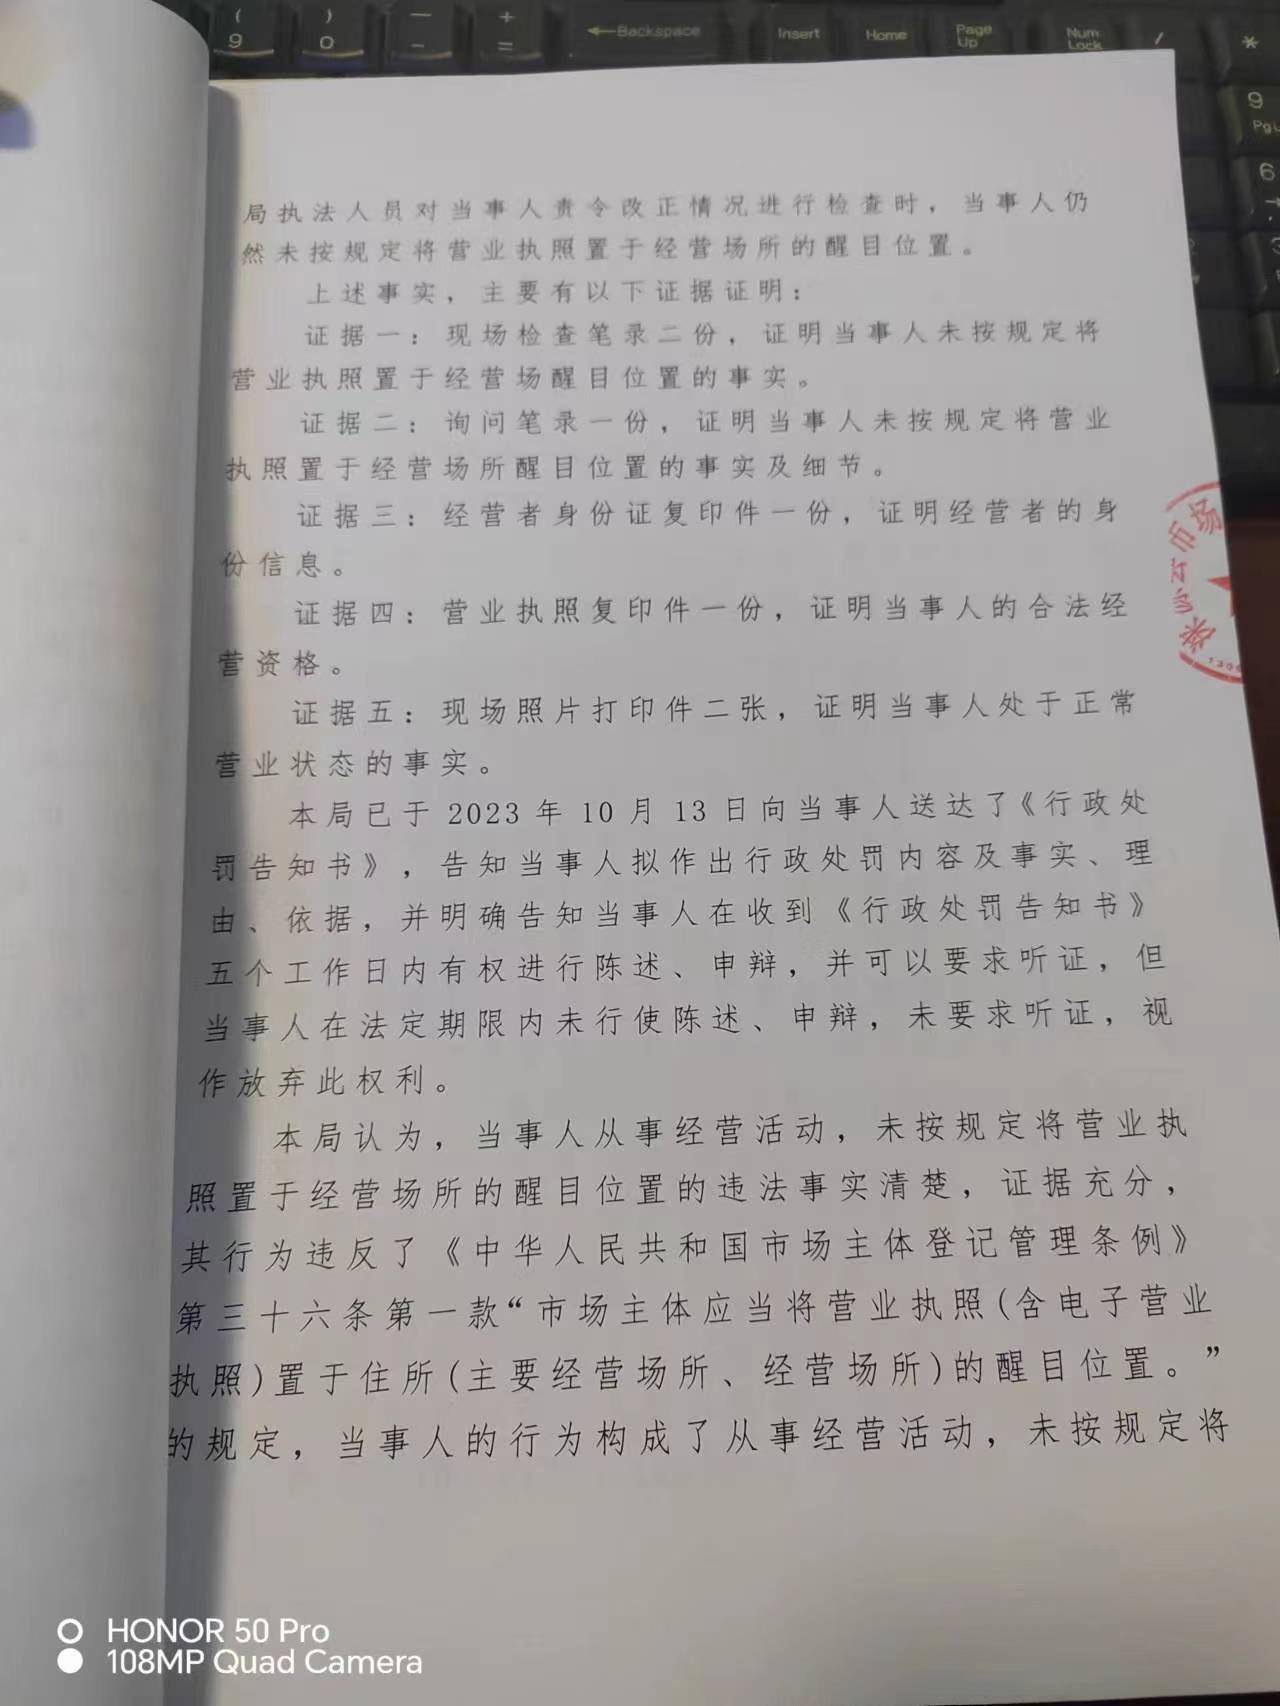 (
9
)
0
—
-
+
=
←Backspace
Insert
Home
Page
Up
Num
Lock
/
*
9
6
局执法人员对当事人责令改正情况进行检查时，当事人仍
然未按规定将营业执照置于经营场所的醒目位置。
上述事实，主要有以下证据证明：
证据一：现场检查笔录二份，证明当事人未按规定将
营业执照置于经营场醒目位置的事实。
证据二：询问笔录一份，证明当事人未按规定将营业
执照置于经营场所醒目位置的事实及细节。
证据三：经营者身份证复印件一份，证明经营者的身
份信息。
证据四：营业执照复印件一份，证明当事人的合法经
营资格。
证据五：现场照片打印件二张，证明当事人处于正常
营业状态的事实。
本局已于 2023 年 10 月 13 日向当事人送达了《行政处
罚告知书》，告知当事人拟作出行政处罚内容及事实、理
由、依据，并明确告知当事人在收到《行政处罚告知书》
五个工作日内有权进行陈述、申辩，并可以要求听证，但
当事人在法定期限内未行使陈述、申辩，未要求听证，视
作放弃此权利。
本局认为，当事人从事经营活动，未按规定将营业执
照置于经营场所的醒目位置的违法事实清楚，证据充分，
其行为违反了《中华人民共和国市场主体登记管理条例》
第三十六条第一款“市场主体应当将营业执照(含电子营业
执照)置于住所(主要经营场所、经营场所)的醒目位置。”
的规定，当事人的行为构成了从事经营活动，未按规定将
市场
HONOR 50 Pro
108MP Quad Camera